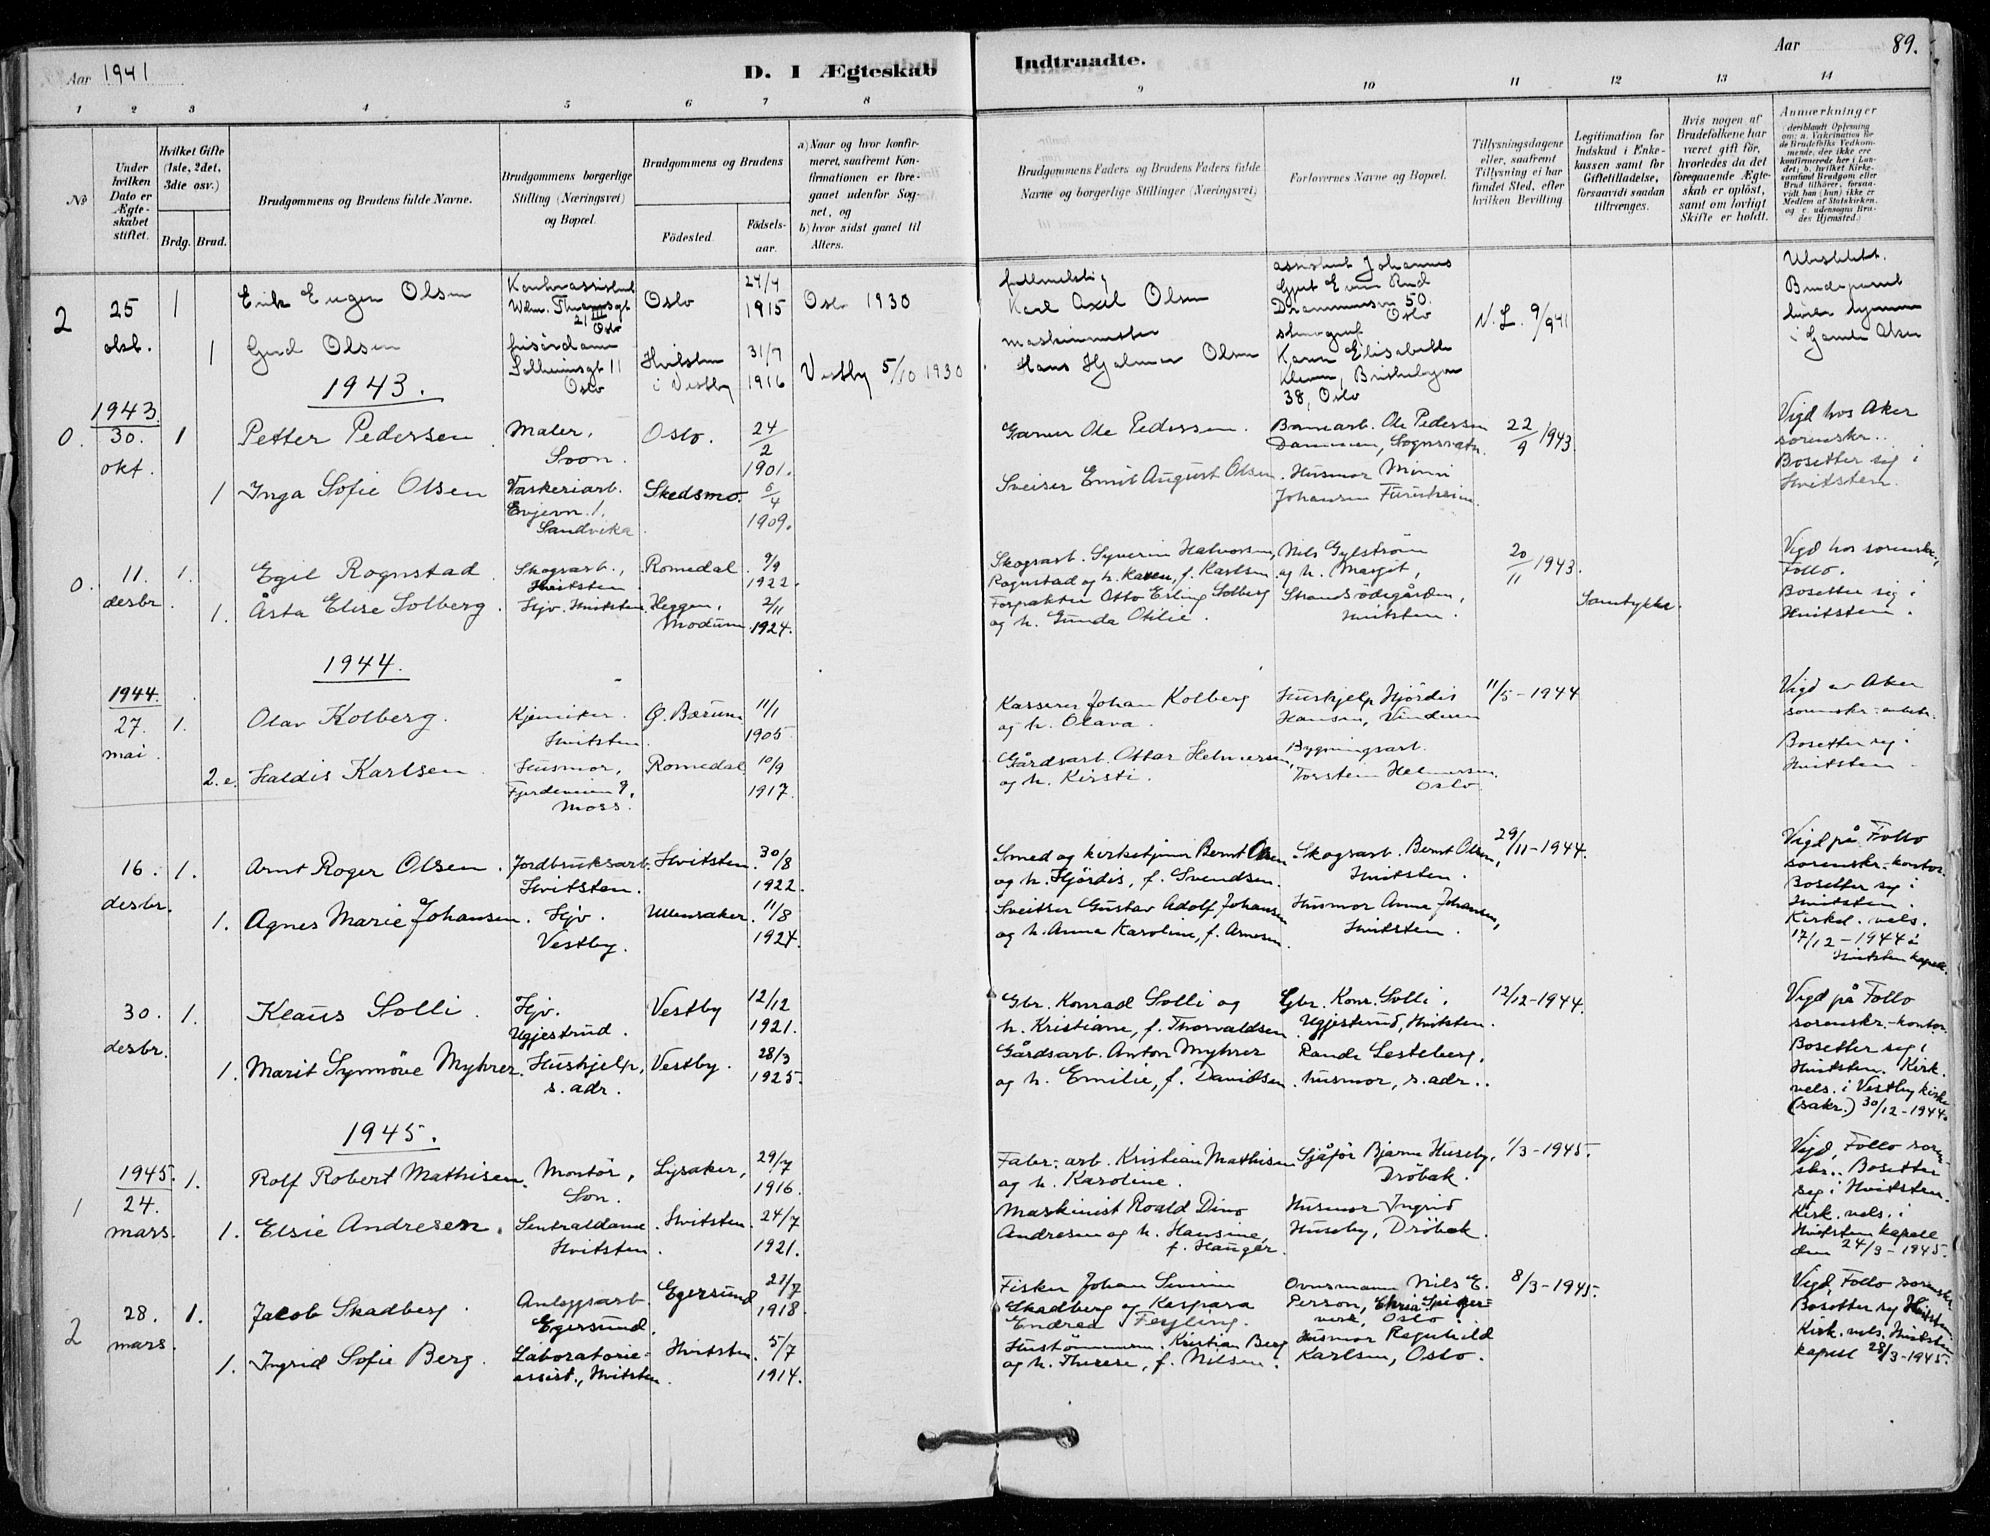 Aar 1941
D. I Ægteskab Indtraadte.
Aar 89.
1 2 3 4 5 6 7 8 9 10 11 12 13 14
No
Under hvilken Dato er Ægteskabet stiftet.
Hvilket Gifte (1ste, 2det, 3die osv.)
Brdg. Brud.
Brudgommens og Brudens fulde Navne.
Brudgommens borgerlige Stilling (Næringsvei) og Bopæl.
Brudgommens og Brudens
Födested. Födselsaar.
a) Naar og hvor konfirmeret, saafremt Konfirmationen er foregaaet udenfor Sognet, og
b) hvor sidst gaaet til Alters.
Brudgommens Faders og Brudens Faders fulde Navne og borgerlige Stillinger (Næringsvei.)
Forlovernes Navne og Bopæl.
Tillysningsdagene eller, saafremt Tillysning ei har fundet Sted, efter hvilken Bevilling.
Legitimation for Indskud i Enkekassen samt for Giftetilladelse, forsaavidt saadan tiltrænges.
Hvis nogen af Brudefolkene har været gift för, hvorledes da det foregaaende Ægteskab er oplöst, samt om lovligt Skifte er holdt.
Anmærkninger
(deriblandt Oplysning om: a. Vakcination for de Brudefolks Vedkommende, der ikke ere konfirmerede her i Landet; b. hvilket Kirkesamfund Brudgom eller Brud tilhörer, forsaavidt han (hun) ikke er Medlem af Statskirken, og c. udensogns Brudes Hjemsted.)
2 25 okt. 1 Erik Eugen Olsen Kontorassistent Oslo 24/4 1915 Oslo 1930
Karl Axel Olsen
assistent Johannes
Oslo
N. L. 9/9 41
1 Gerd Olsen frisördame Solheimsgt 11 Oslo Hvitsten i Vestby 31/7 1916 Vestby 5/10 1930
maskinmester Hans Hjalmar Olsen
Karen Elisabeth
38, Oslo
1943.
1943
0. 30. okt. 1 Petter Pedersen Maler, Soon. Oslo. 24/2 1901.
Garver Ole Pedersen.
Ole Pedersen
Dammen, Sognsvatn.
22/9 1943
Vigd hos Aker sorenskr..
Bosetter seg i Hvitsten.
1 Inga Sofie Olsen Vaskeriarb. Evjevn. 1, Sandvika Skedsmo. 6/4 1909.
Sveiser Emil August Olsen.
Husmor Minni Johansen Furuheim.
0. 11. desbr. 1. Egil Rognstad. Skogsarb., Hvitsten Romedal. 9/9 1922.
Skogsarb. Syverin Halvorsen Rognstad og h. Karen, f. Karlsen
Nils Gylström og h. Margit, Strandsödegården, Hvitsten.
20/11 1943.
Vigd hos sorenskr., Follo.
Bosetter seg i Hvitsten.
1. Åsta Elise Solberg. Hjv. Hvitsten. Heggen, Modum. 2/11 1924.
Forpakter Otto Erling Solberg og h. Gunda Otilie.
Samtykke.
1944.
1944.
27. mai 1. Olav Kolberg. Kjemiker. Hvitsten. Ø. Bærum 11/1 1905
Kasserer Johan Kolberg og h. Olava.
Hushjelp Hjördis Hansen, Vinderen
11/5-1944
Vigd av Aker
Bosetter seg i Hvitsten
2. e. Haldis Karlsen. Husmor, Fjordveien 9, Moss. Romedal 10/9 1917.
Gårdsarb. Ottar Helmersen, og h. Kirsti.
Bygningsarb. Torstein Helmersen. Oslo.
16. desbr. 1. Arnt Roger Olsen. Jordbruksarb. Hvitsten. Hvitsten. 30/8 1922.
Smed og kirketjener Bernt Olsen og h. Hjördis, f. Svendsen.
Skogsarb. Bernt Olsen, Hvitsten.
29/11-1944.
Vigd på Follo sorenskr.-kontor.
Bosetter seg i Hvitsten.
Kirkel. vels. 17/12-1944 i Hvitsten kapell.
1. Agnes Marie Johansen. Hjv. Vestby. Ullensaker. 11/8 1924.
Sveitser Gustav Adolf Johansen og h. Anna Karoline, f. Arnesen.
Husmor Anna Johansen, Hvitsten.
30. desbr. 1. Klaus Solli. Hjv. Ugjestrud. Vestby 12/12 1921.
Gbr. Konrad Solli og h. Kristiane, f. Thorvaldsen
Gbr. Konr. Solli, Ugjestrud, Hvitsten.
12/12-1944.
Vigd på Follo sorenskr.-kontor.
Bosetter seg i Hvitsten. Kirk. vels. i Vestby kirke (sakr.) 30/12-1944.
1. Marit Synnöve Myhrer. Hushjelp, s. adr. Vestby. 28/3 1925.
Gårdsarb. Anton Myhrer og h. Emilie, f. Davidsen.
Randi Lesteberg, husmor, s. adr..
1945.
1945.
1 24. mars. 1. Rolf Robert Mathisen. Montör, Son. Lysaker, 29/7 1916.
Fabr.-arb. Kristian Mathisen og h. Karoline.
Sjåför Bjarne Huseby, Dröbak.
1/3-1945.
Vigd, Follo sorenskr.. Bosetter seg i Hvitsten.
Kirk. vels. i Hvitsten kapell den 24/3-1945.
1. Elsie Andresen. Sentraldame. Hvitsten. Hvitsten. 24/7 1921.
Maskinist Roald Dino Andresen og h. Hansine, f. Haugér.
Husmor Ingrid Huseby, Dröbak.
2 28. mars. 1. Jacob Skadberg. Anleggsarb. Egersund. Egersund 21/7 1918.
Fisker Johan Severin Skadberg og Kaspara Endrea Feyling.
Ovnsmann Nils E. Person, Christ. Spigerverk, Oslo.
8/3-1945.
Vigd, Follo sorenskr.
Bosetter seg Hvitsten.
Kirk. vels. Hvitsten kapell 28/3-1945.
1. Ingrid Sofie Berg. Laboratorieassist., Hvitsten. Hvitsten. 5/7 1914.
Hustömmerm. Kristian Berg og h. Therese, f. Nilsen.
Husmor Ragnhild Karlsen, Oslo.